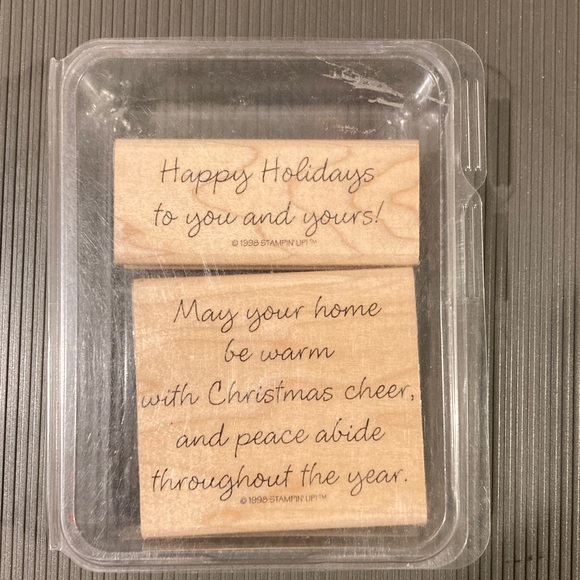 Happy Holidays
to you and yours!
© 1998 STAMPIN' UP!™
May your home
be warm
with Christmas cheer,
and peace abide
throughout the year.
© 1998 STAMPIN' UP!™